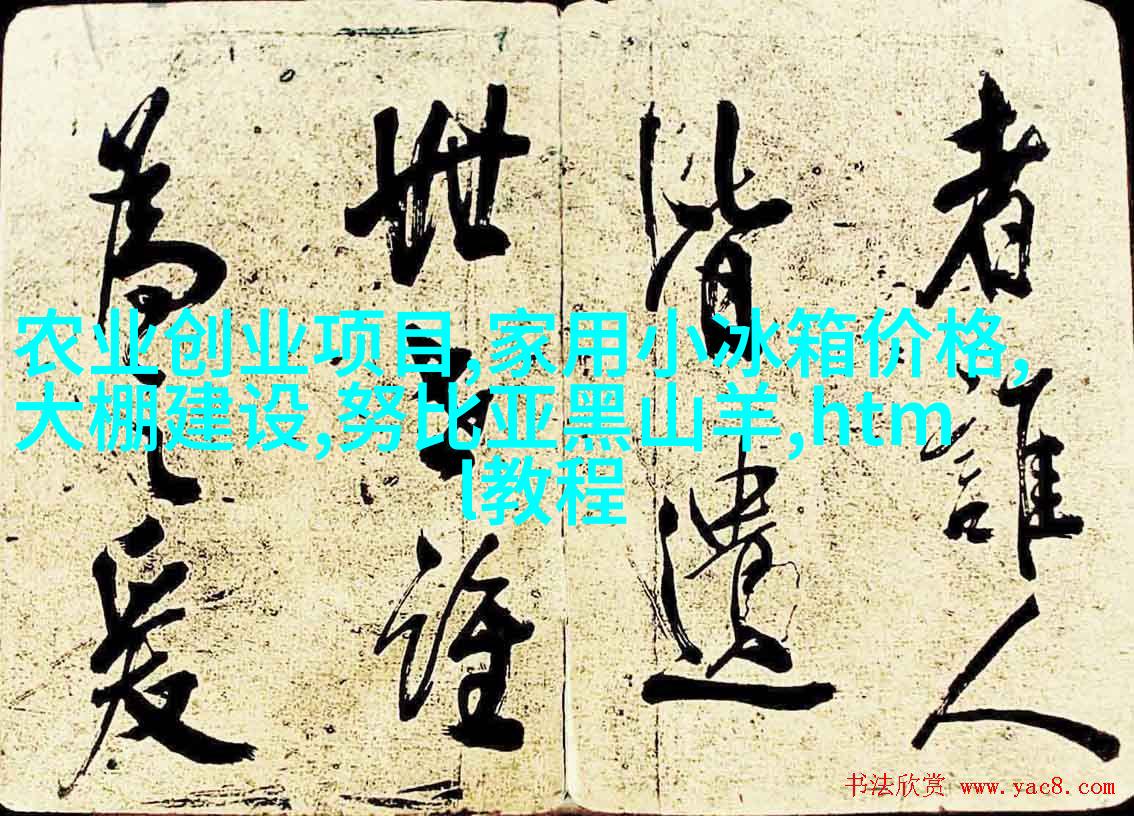 者誰人
皆遺
世誰
為之爰
农业创业项目,家用小冰箱价格,
大棚建设,努比亚黑山羊,htm
l教程
书法欣赏 www.yac8.com